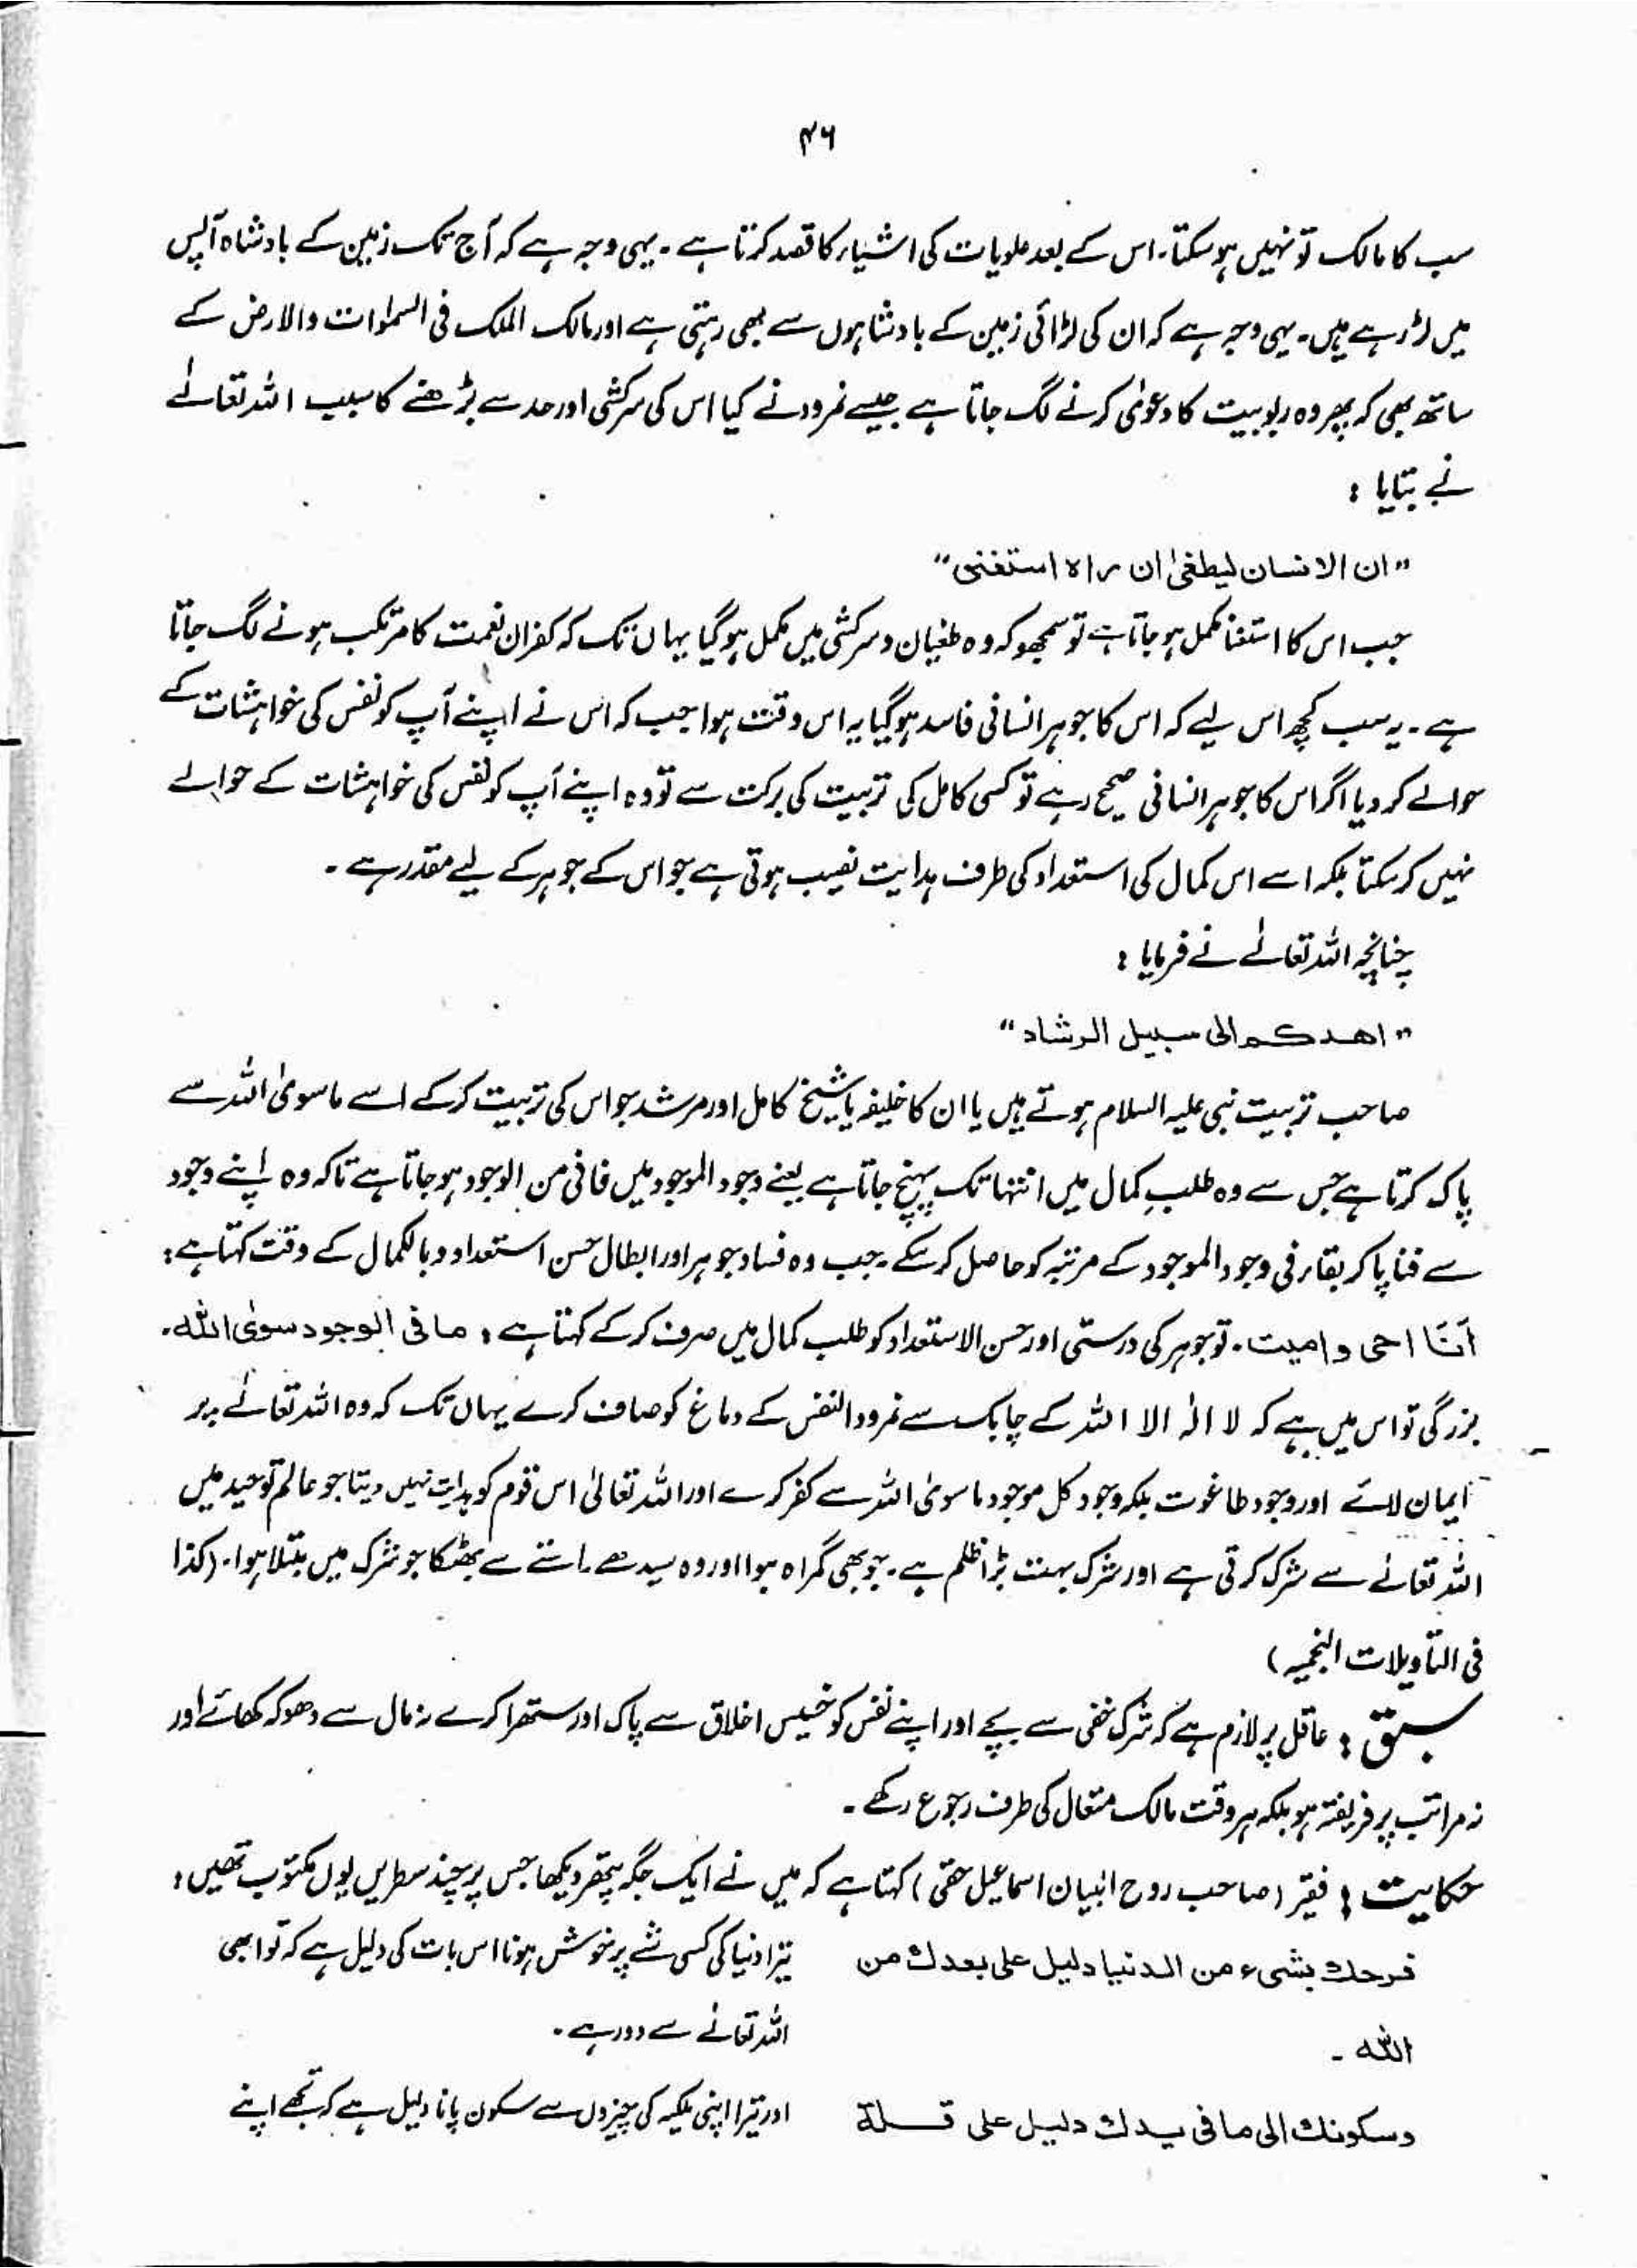 ۴۶
سب کا مالک تو نہیں ہو سکتا۔ اس کے بعد علویات کی اشیاء کا قصد کرتا ہے۔ یہی وجہ ہے کہ آج تک زمین کے بادشاہ آپس
میں لڑ رہے ہیں۔ یہی وجہ ہے کہ ان کی لڑائی زمین کے بادشاہوں سے بھی رہتی ہے اور مالک الملک فی السمٰوات والارض کے
ساتھ بھی کہ پھر وہ ربوبیت کا دعویٰ کرنے لگ جاتا ہے جیسے نمرود نے کیا اس کی سرکشی اور حد سے بڑھنے کا سبب اللہ تعالےٰ
نے بتایا :
"ان الانسان لیطغیٰ ان راہ استغنی"
جب اس کا استغنا مکمل ہو جاتا ہے تو سمجھو کہ وہ طغیان و سرکشی میں مکمل ہو گیا یہاں تک کہ کفران نعمت کا مرتکب ہونے لگ جاتا
ہے۔ یہ سب کچھ اس لیے کہ اس کا جوہر انسانی فاسد ہو گیا یہ اس وقت ہوا جب کہ اس نے اپنے آپ کو نفس کی خواہشات کے
حوالے کر دیا اگر اس کا جوہر انسانی صحیح رہے تو کسی کامل کی تربیت کی برکت سے تو وہ اپنے آپ کو نفس کی خواہشات کے حوالے
نہیں کر سکتا بلکہ اسے اس کمال کی استعداد کی طرف ہدایت نصیب ہوتی ہے جو اس کے جوہر کے لیے مقدر ہے۔
چنانچہ اللہ تعالےٰ نے فرمایا :
"اھدکم الی سبیل الرشاد"
صاحب تربیت نبی علیہ السلام ہوتے ہیں یا ان کا خلیفہ یا شیخ کامل اور مرشد جو اس کی تربیت کر کے اسے ماسویٰ اللہ سے
پاک کرتا ہے جس سے وہ طلبِ کمال میں انتہا تک پہنچ جاتا ہے یعنے وجود الموجود میں فانی من الوجود ہو جاتا ہے تاکہ وہ اپنے وجود
سے فنا پا کر بقاء فی وجود الموجود کے مرتبہ کو حاصل کر سکے۔ جب وہ فساد جوہر اور ابطال حسن استعداد و بالکمال کے وقت کہتا ہے :
اَنَا احی و امیت۔ تو جوہر کی درستی اور حسن الاستعداد کو طلب کمال میں صرف کر کے کہتا ہے : ما فی الوجود سوی اللہ۔
بزرگی تو اس میں ہے کہ لا الٰہ الا اللہ کے چابک سے نمرود النفس کے دماغ کو صاف کرے یہاں تک کہ وہ اللہ تعالےٰ پر
ایمان لائے اور وجود طاغوت بلکہ وجود کل موجود ماسویٰ اللہ سے کفر کرے اور اللہ تعالیٰ اس قوم کو ہدایت نہیں دیتا جو عالم توحید میں
اللہ تعالےٰ سے شرک کرتی ہے اور شرک بہت بڑا ظلم ہے۔ جو بھی گمراہ ہوا اور وہ سیدھے راستے سے بھٹکا جو شرک میں مبتلا ہوا۔ (کذا
فی التأویلات النجمیہ)
سبق : عاقل پر لازم ہے کہ شرک خفی سے بچے اور اپنے نفس کو خسیس اخلاق سے پاک اور ستھرا کرے نہ مال سے دھوکہ کھائے اور
نہ مراتب پر فریفتہ ہو بلکہ ہر وقت مالک متعال کی طرف رجوع رکھے۔
حکایت : فقیر (صاحب روح البیان اسماعیل حقی) کہتا ہے کہ میں نے ایک جگہ پتھر دیکھا جس پر چند سطریں یوں مکتوب تھیں :
فرحك بشیء من الدنیا دلیل علی بعدك من
اللہ ۔
وسکونك الی ما فی یدك دلیل علی قلة
تیرا دنیا کی کسی شے پر خوش ہونا اس بات کی دلیل ہے کہ تو ابھی
اللہ تعالےٰ سے دور ہے۔
اور تیرا اپنی ملکیہ کی چیزوں سے سکون پانا دلیل ہے کہ تجھے اپنے